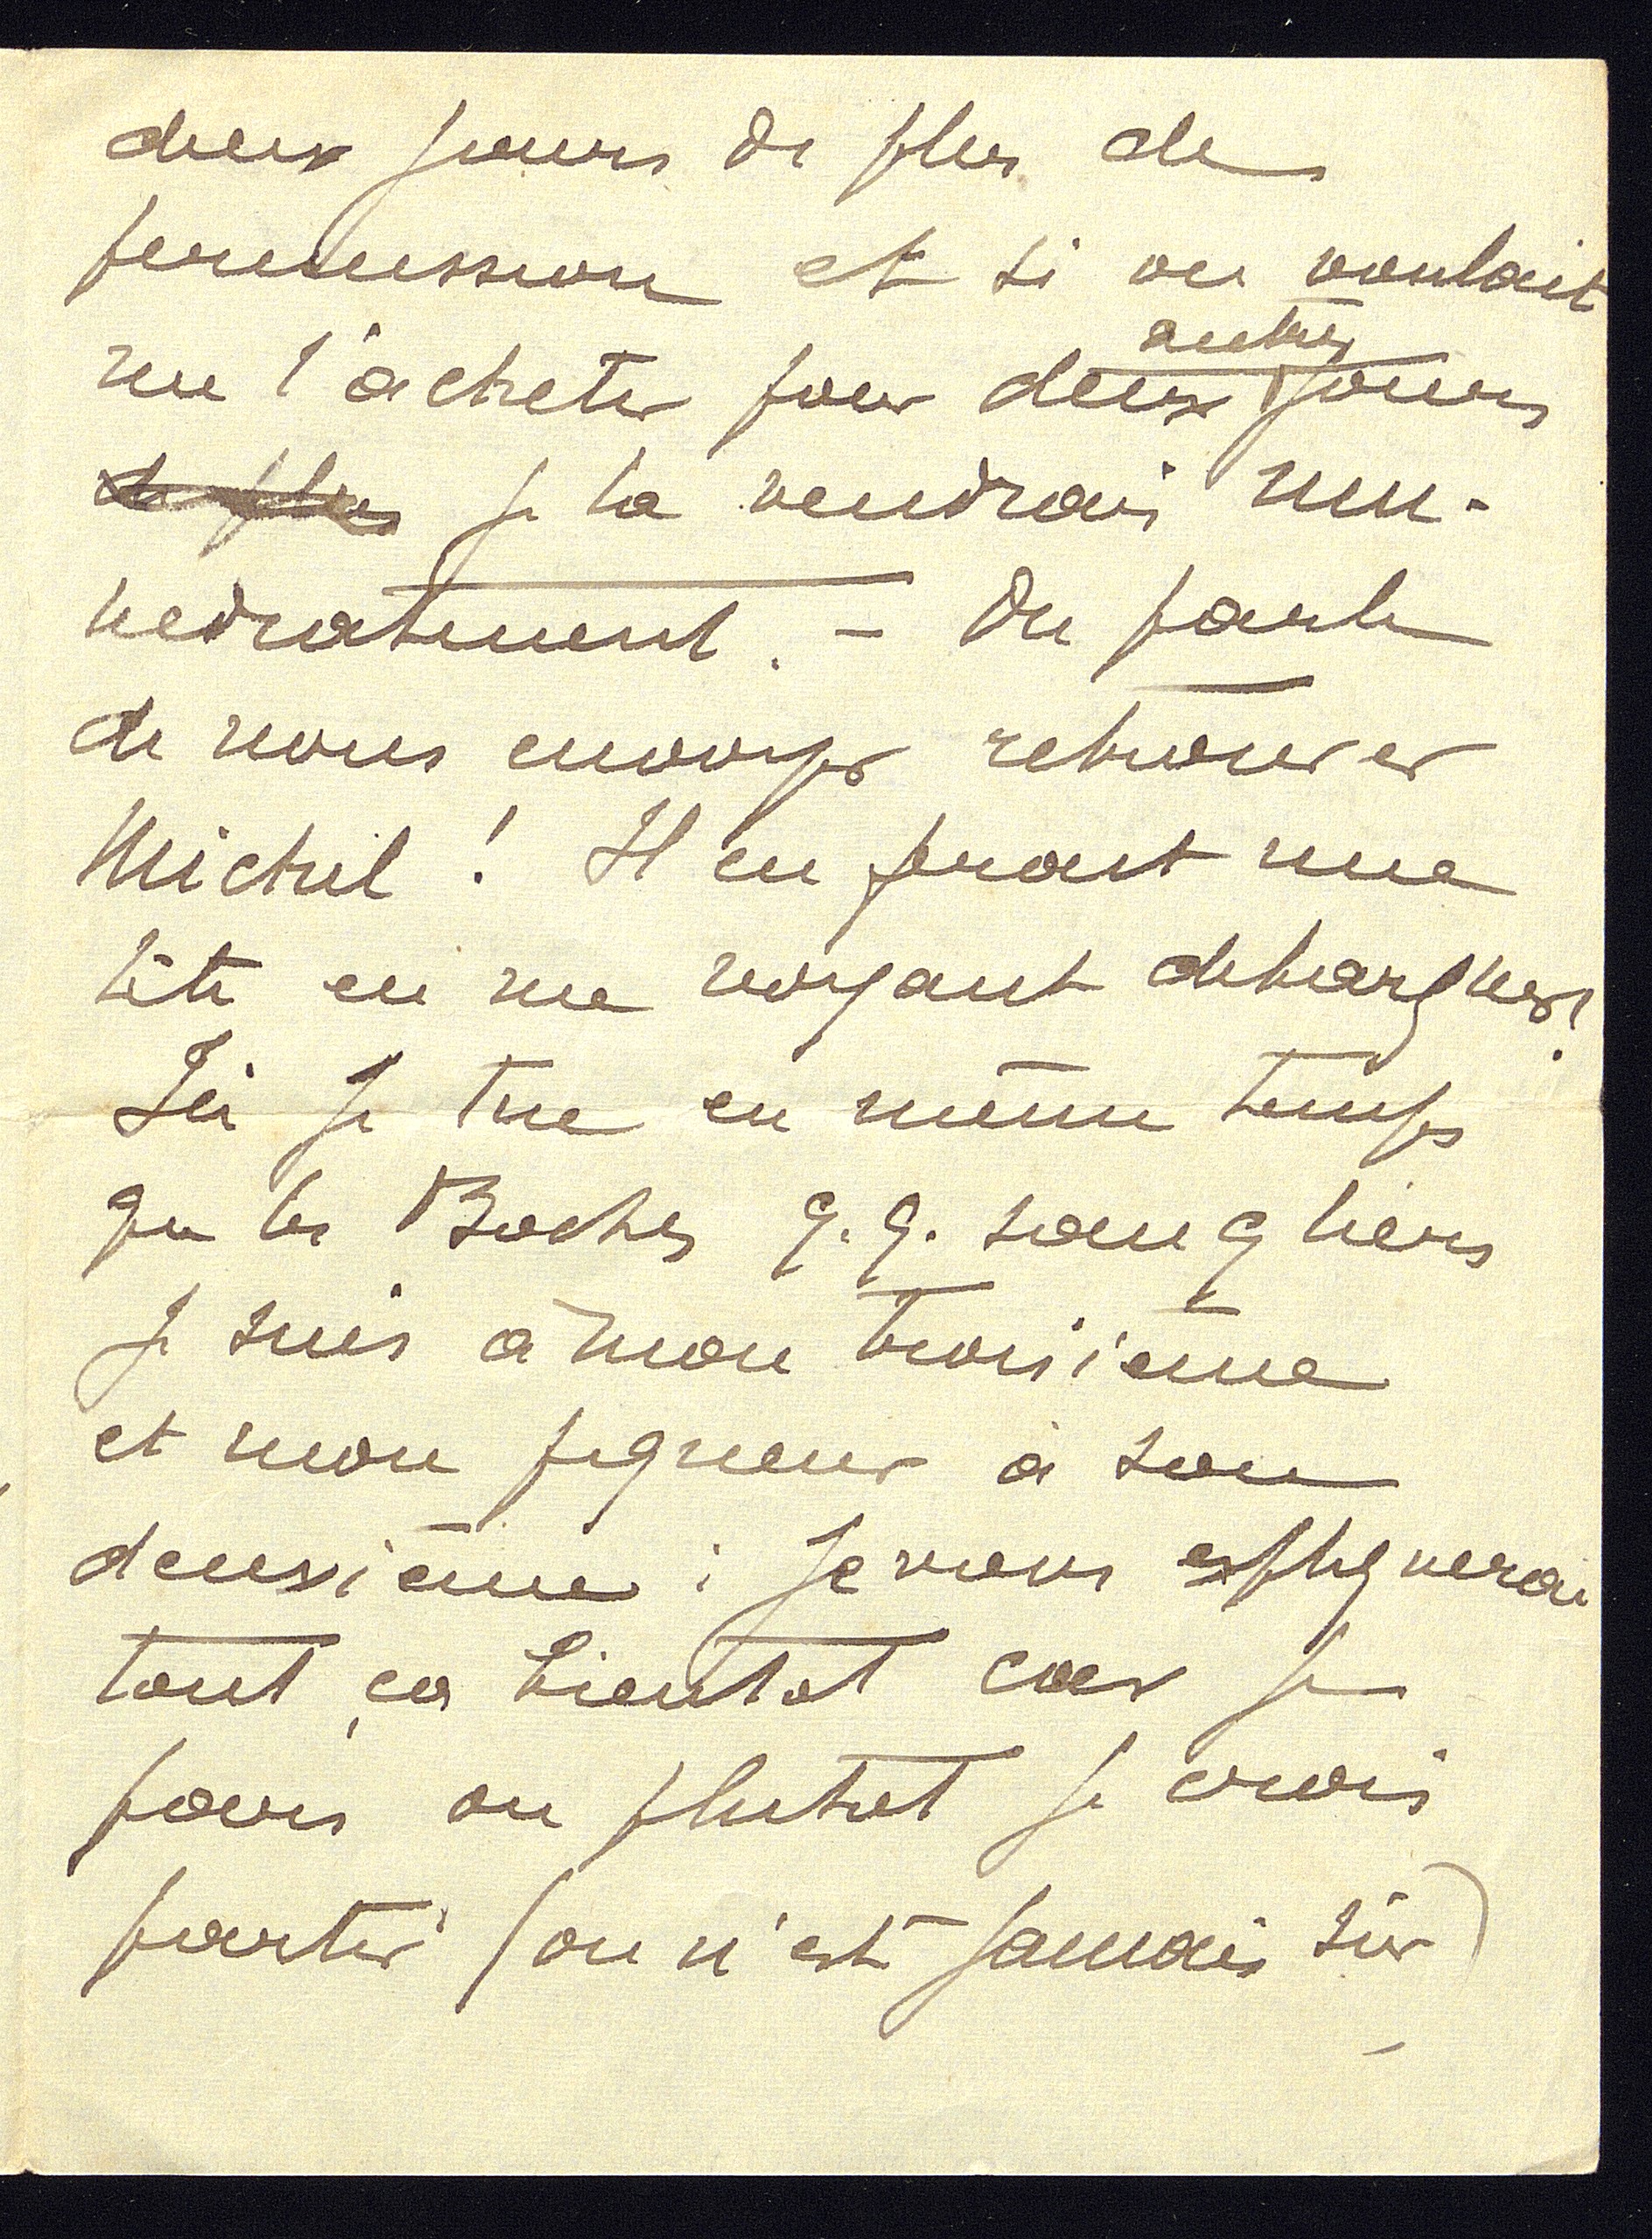 deux jours de plus de
permission et si on voulait
me l'acheter pour deux autres jours
de plus je la vendrais im-
mediatement. – On parle
de nous envoyer retrouver
Michel ! Il en ferait une
tête en me voyant debarquer !
Ici je tue en même temps
que les Boches q.q. sangliers
je suis à mon troisième
et mon piqueur à son
deuxième ; Je vous expliquerai
tout ça bientot car je
pars ou plutot je crois
partir (on n'est jamais sûr)